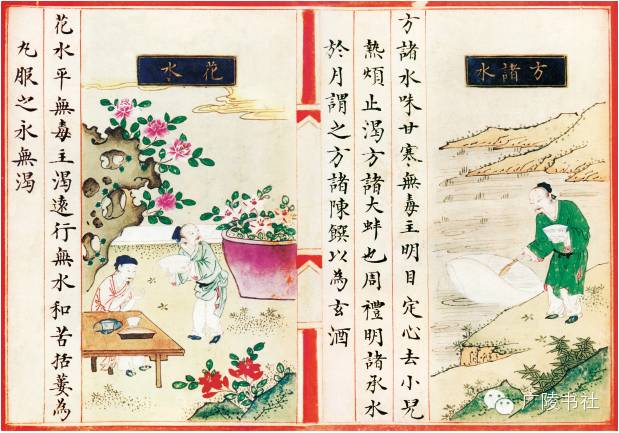 方諸水
方諸水味甘寒無毒主明目定心去小兒
熱煩止渴方諸大蚌也周禮明諸承水
於月謂之方諸陳饌以為玄酒
花水
花水平無毒主渴遠行無水和苦括蔞為
丸服之永無渴
广陵书社